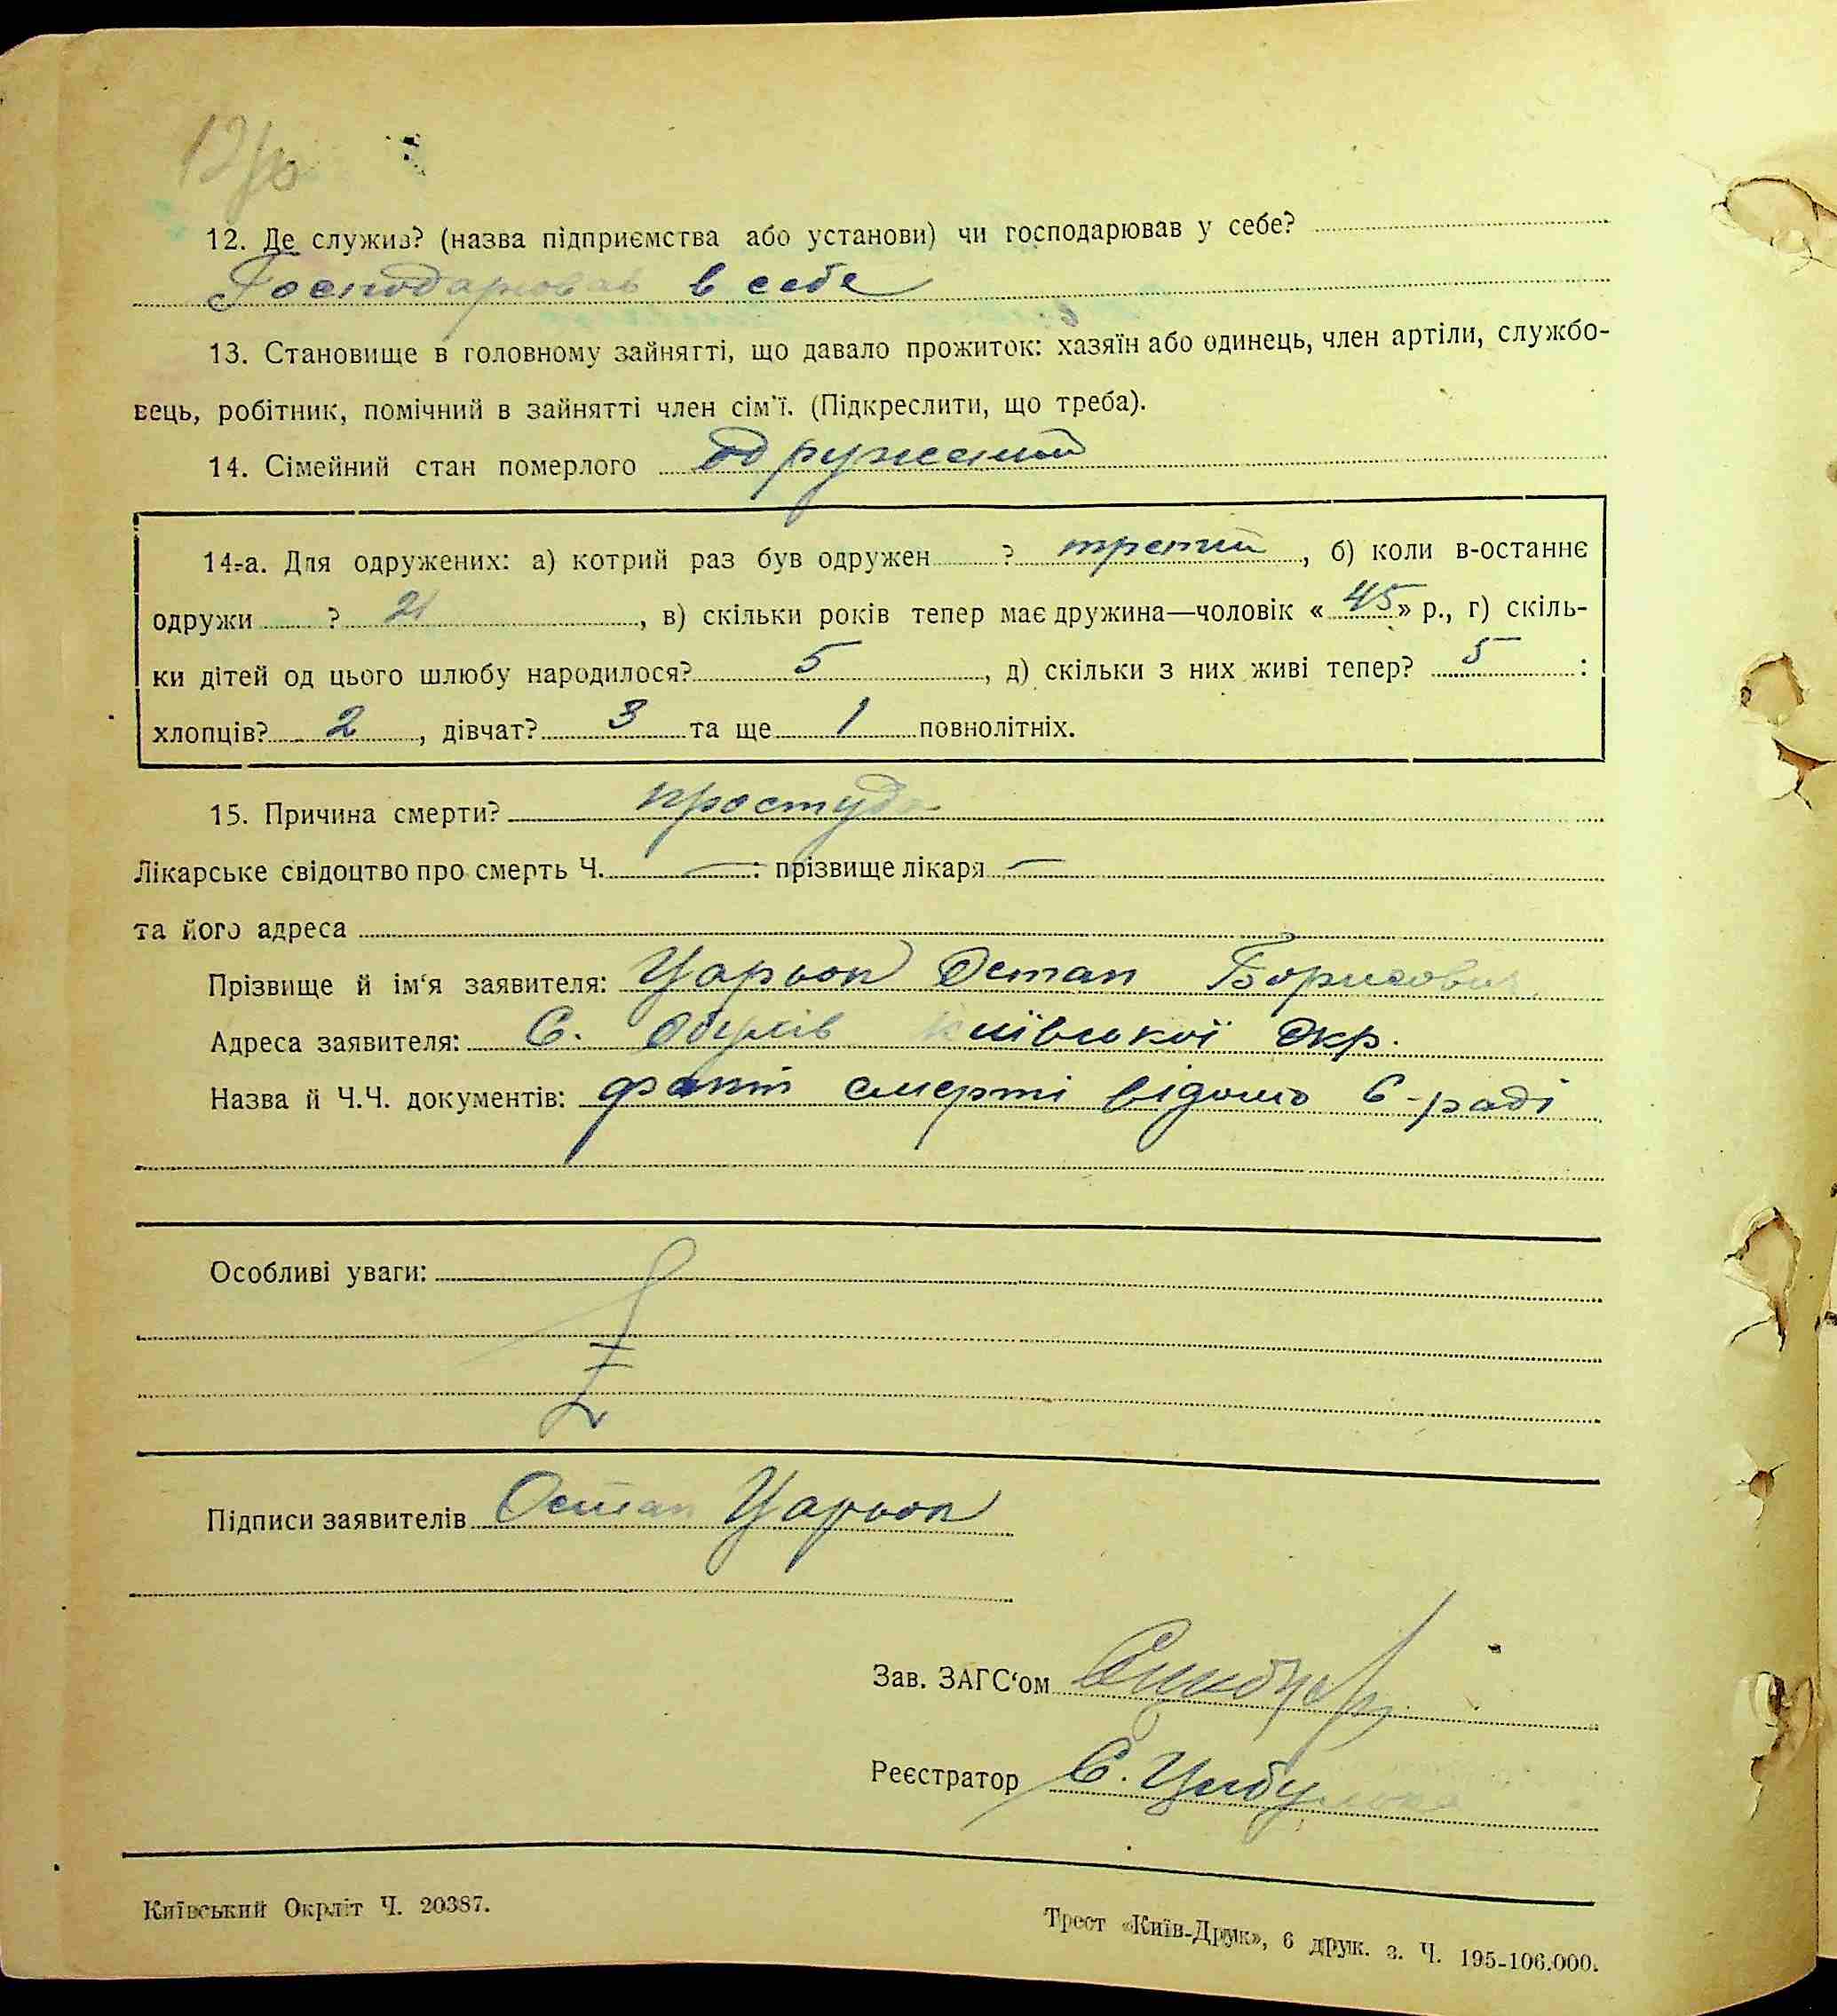 12. Де служив? (назва підприємства або установи) чи господарював у себе?
Господарював в себе
13. Становище в головному зайнятті, що давало прожиток: хазяїн або одинець, член артіли, службо-
вець, робітник, помічний в зайнятті член сім'ї. (Підкреслити, що треба).
14. Сімейний стан померлого одружений
14-а. Для одружених: а) котрий раз був одружен ? третий, б) коли в-останнє
одружи ? 21, в) скільки років тепер має дружина—чоловік «45» р., г) скіль-
ки дітей од цього шлюбу народилося? 5, д) скільки з них живі тепер? 5 :
хлопців? 2, дівчат? 3 та ще 1 повнолітніх.
15. Причина смерти? простуда
Лікарське свідоцтво про смерть Ч. — : прізвище лікаря —
та його адреса
Прізвище й ім'я заявителя: Царьок Остап Борисович
Адреса заявителя: С. Київської Окр.
Назва й Ч.Ч. документів: факт смерті відомо С-раді
Особливі уваги:
Підписи заявителів Остап Царьок
Зав. ЗАГС'ом
Реєстратор Є. Цибулько
Київський Окрліт Ч. 20387.
Трест «Київ-Друк», 6 друк. з. Ч. 195-106.000.